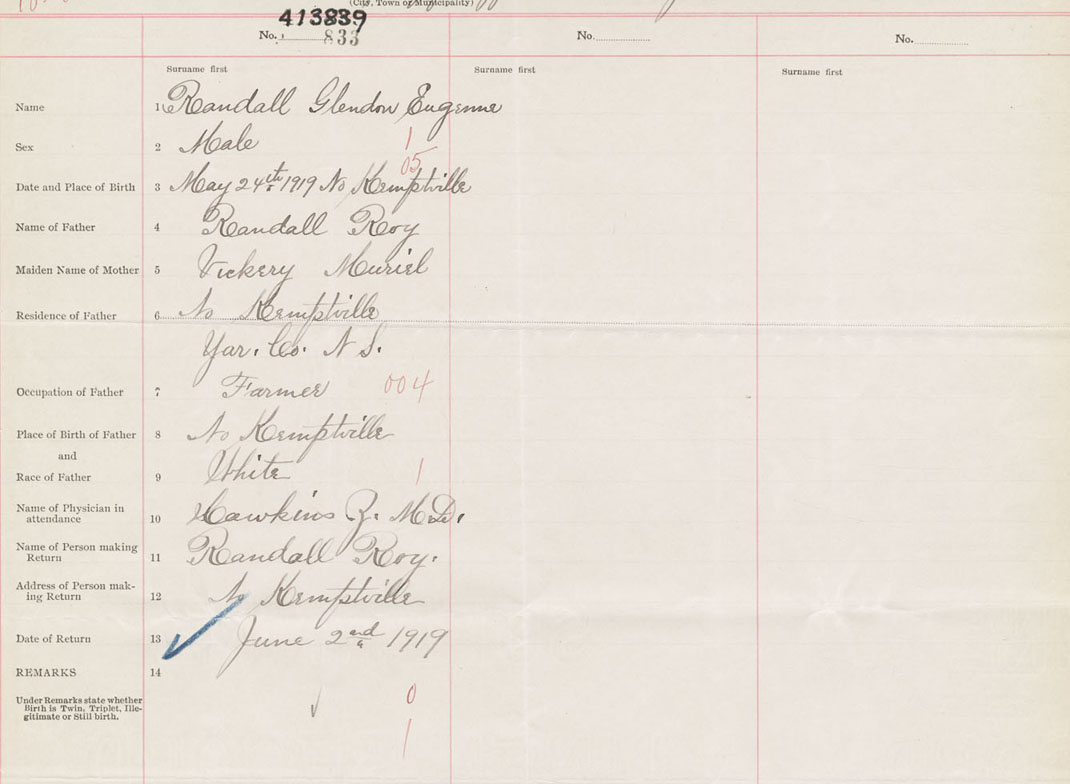 (City, Town or Municipality)
413839
No. 833 No. No.
Surname first Surname first Surname first
Name 1 Randall Glendon Eugenne
Sex 2 Male 1
05
Date and Place of Birth 3 May 24th 1919 No Kemptville
Name of Father 4 Randall Roy
Maiden Name of Mother 5 Vickery Muriel
Residence of Father 6 No Kemptville
Yar. Co. N S.
Occupation of Father 7 Farmer 004
Place of Birth of Father 8 No Kemptville
and
Race of Father 9 White 1
Name of Physician in
attendance 10 Hawkins Z. M.D.
Name of Person making
Return 11 Randall Roy.
Address of Person mak-
ing Return 12 No Kemptville
Date of Return 13 June 2nd 1919
REMARKS 14
Under Remarks state whether
Birth is Twin, Triplet, Ille-
gitimate or Still birth.
0
1